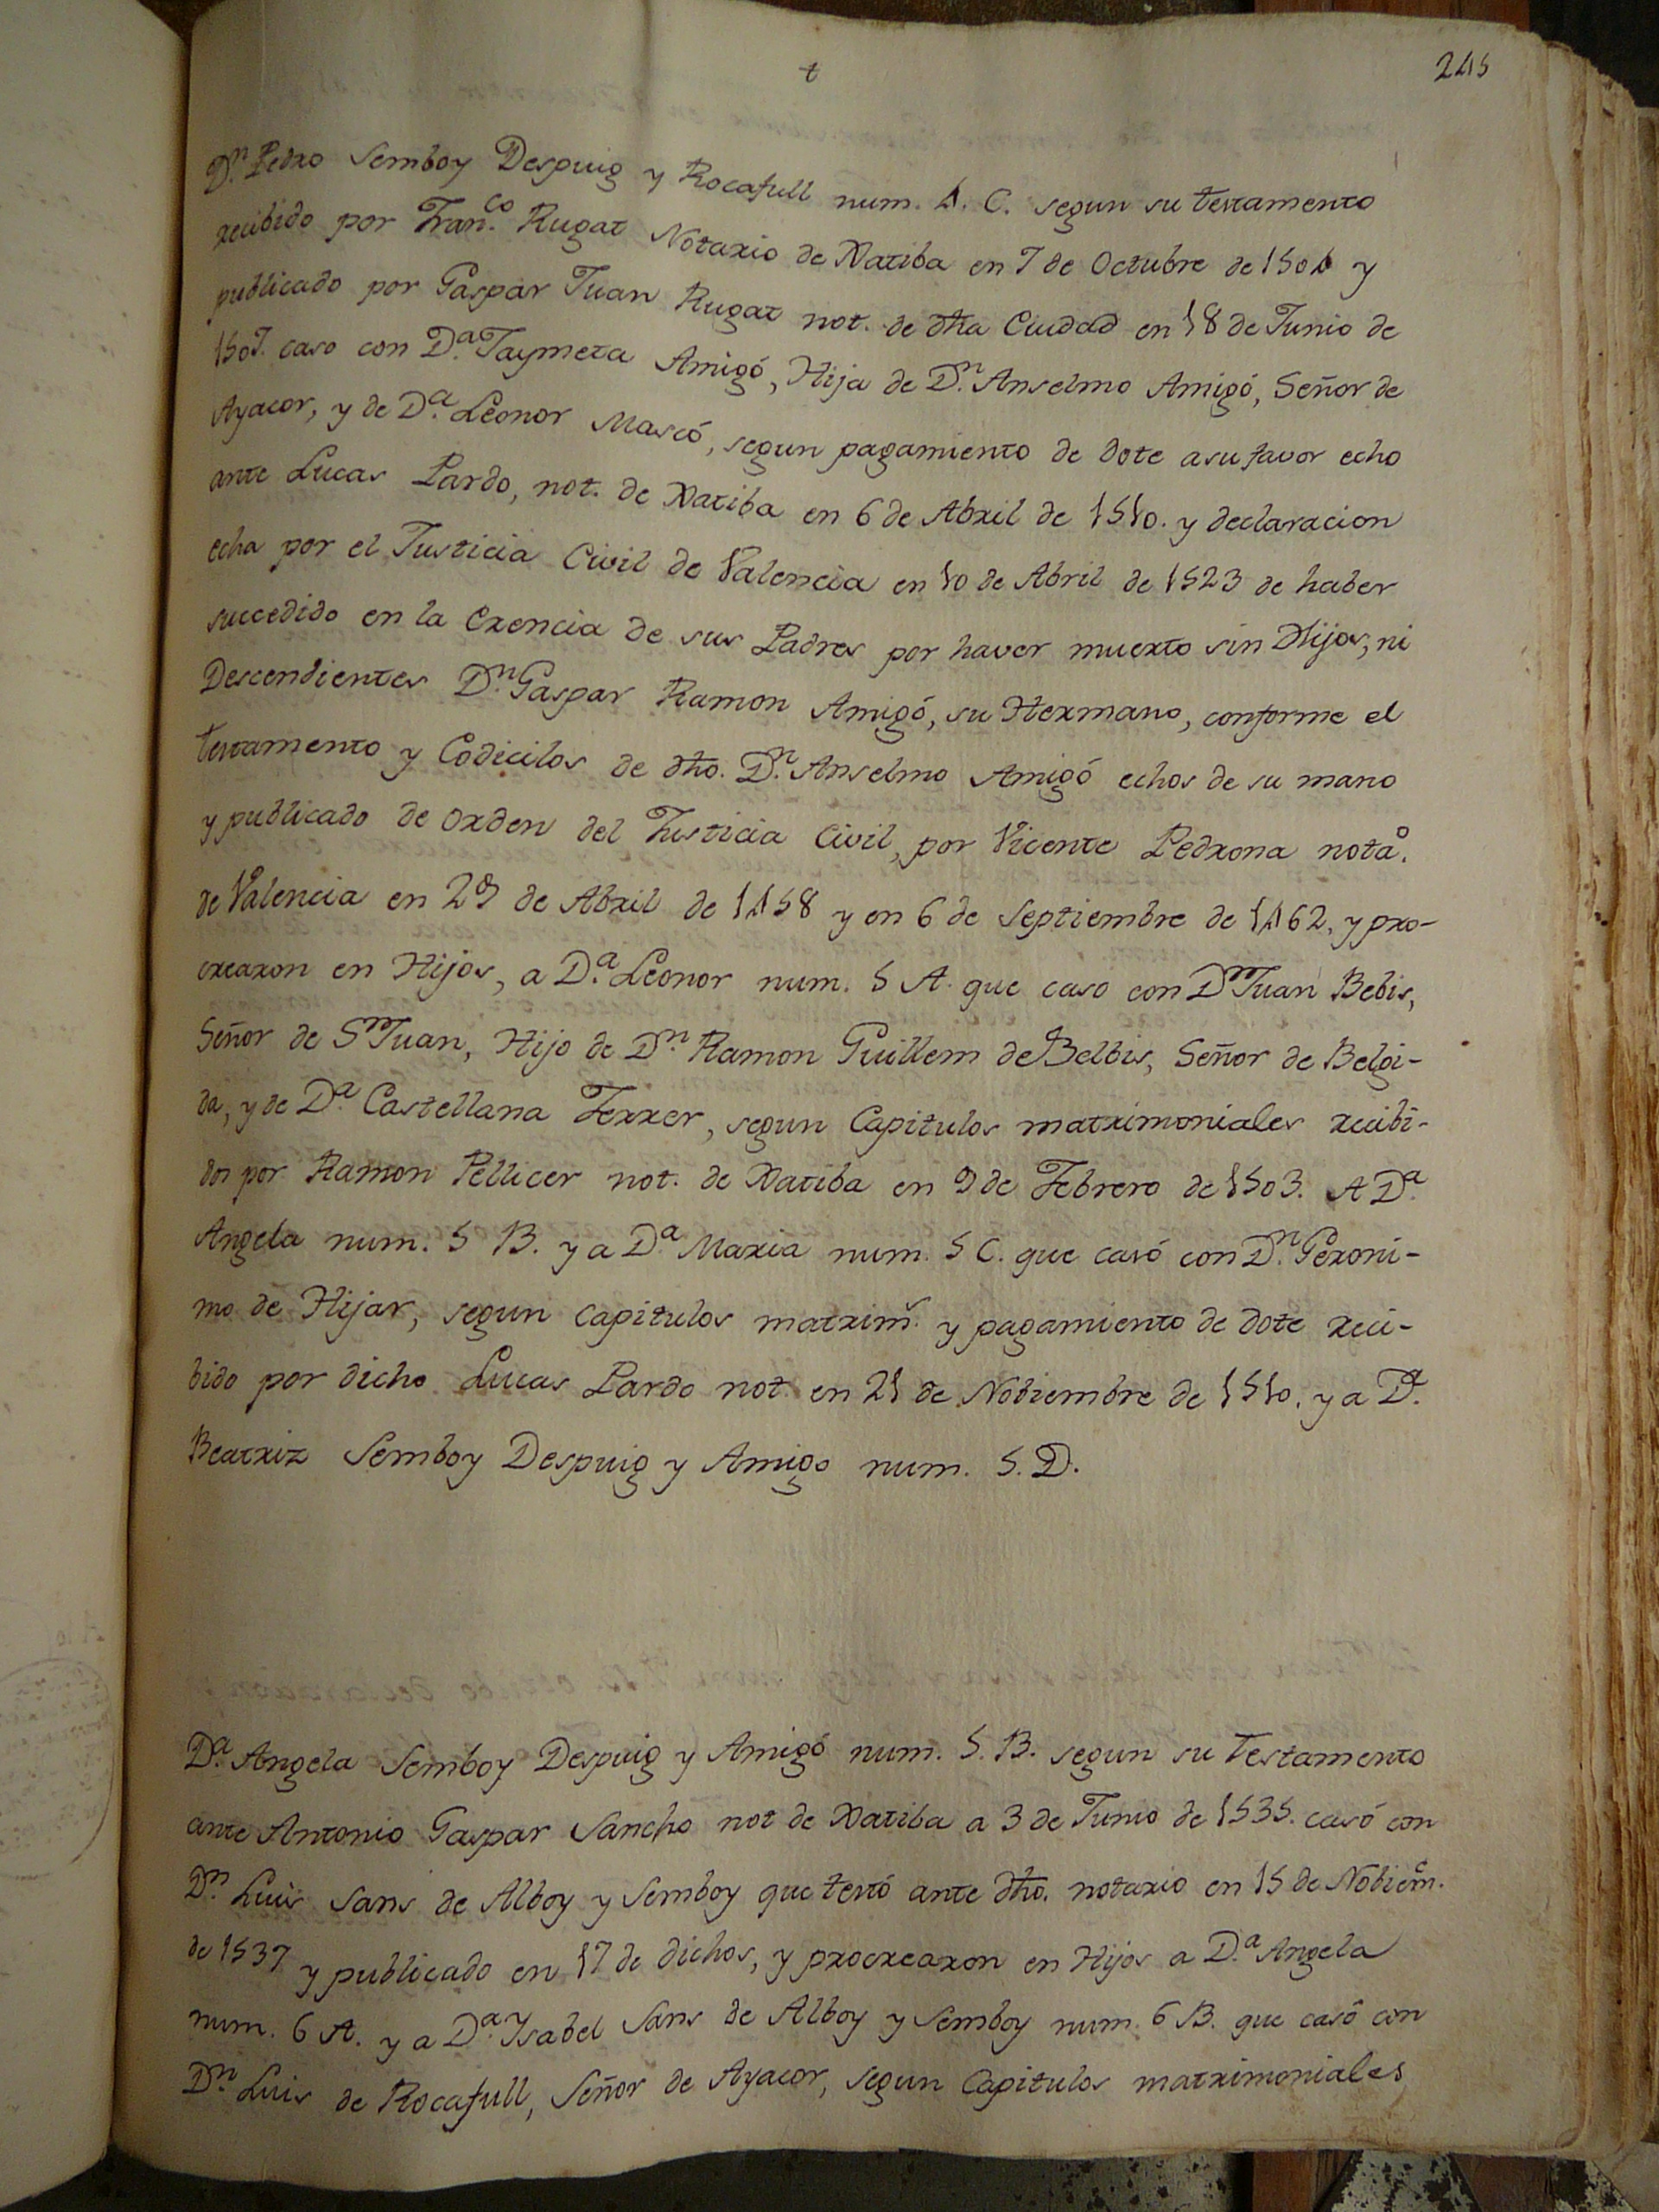 t
245
Dn. Pedro Semboy Despuig y Rocafull num. 4. C. segun su testamento
recibido por Franco. Rugat Notario de Xatiba en 7 de Octubre de 1504 y
publicado por Gaspar Juan Rugat not. de dha Ciudad en 18 de Junio de
1507. caso con Da. Jaymeta Amigó, Hija de Dn. Anselmo Amigó, Señor de
Ayacor, y de Da. Leonor Mascó, segun pagamiento de dote asu favor echo
ante Lucas Pardo, not. de Xatiba en 6 de Abril de 1510. y declaracion
echa por el Justicia Civil de Valencia en 10 de Abril de 1523 de haber
succedido en la Erencia de sus Padres por haver muerto sin Hijos, ni
Descendientes Dn. Gaspar Ramon Amigó, su Hermano, conforme el
testamento y Codicilos de dho. Dn. Anselmo Amigó echos de su mano
y publicado de orden del Justicia Civil, por Vicente Pedrona notao.
de Valencia en 29 de Abril de 1458 y en 6 de Septiembre de 1462, y pro-
crearon en Hijos, a Da. Leonor num. 5 A. que caso con Dn Juan Bebis,
Señor de Sn Juan, Hijo de Dn. Ramon Guillem de Belbis, Señor de Belgi-
da, y de Da. Castellana Ferrer, segun Capitulos matrimoniales recibi-
dos por Ramon Pellicer not. de Xatiba en 9 de Febrero de 1503. A Da.
Angela num. 5 B. y a Da. Maria num. 5 C. que casó con Dn. Geroni-
mo de Hijar, segun capitulos matrims. y pagamiento de dote reci-
bido por dicho Lucas Pardo not. en 21 de Nobiembre de 1510. y a Da.
Beatriz Semboy Despuig y Amigo num. 5. D.
Da. Angela Semboy Despuig y Amigó num. 5. B. segun su Testamento
ante Antonio Gaspar Sancho not de Xatiba a 3 de Junio de 1535. casó con
Dn. Luis Sans de Alboy y Semboy que testó ante dho. notario en 15 de Nobiem.
de 1537 y publicado en 17 de dichos, y procrearon en Hijos a Da. Angela
num. 6 A. y a Da. Ysabel Sans de Alboy y Semboy num. 6 B. que casó con
Dn. Luis de Rocafull, Señor de Ayacor, segun Capitulos matrimoniales